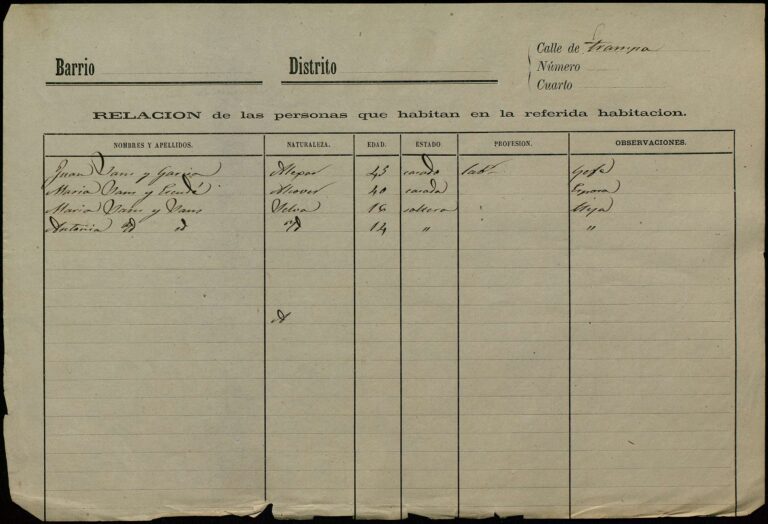 Calle de Trampa
Barrio Distrito Número
Cuarto
RELACION de las personas que habitan en la referida habitacion.
NOMBRES Y APELLIDOS. NATURALEZA. EDAD. ESTADO PROFESION. OBSERVACIONES.
Juan Sans y Garcia 45 casado Labr Gefe
Maria Sans y Escudé Alcover 40 casada Esposa
Maria Sans y Sans Selva 16 soltera Hija
Antonia id id id 14 " "